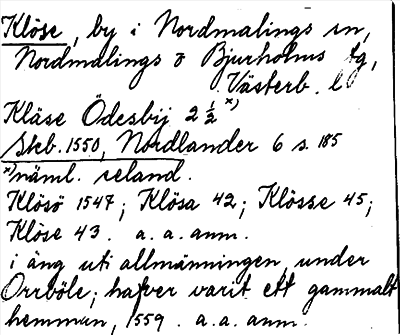 Klöse, by i Nordmalings sn,
Nordmalings o Bjurholms tg,
Västerb. l
Kläse Ödesbij 2 ½ x)
Skb. 1550, Nordlander 6 s. 185
x) näml. seland.
Klösö 1547; Klösa 42; Klösse 45;
Klöse 43. a. a. anm.
i äng uti allmänningen under
Orrböle; hafver varit ett gammalt
hemman, 1559. a. a. anm.